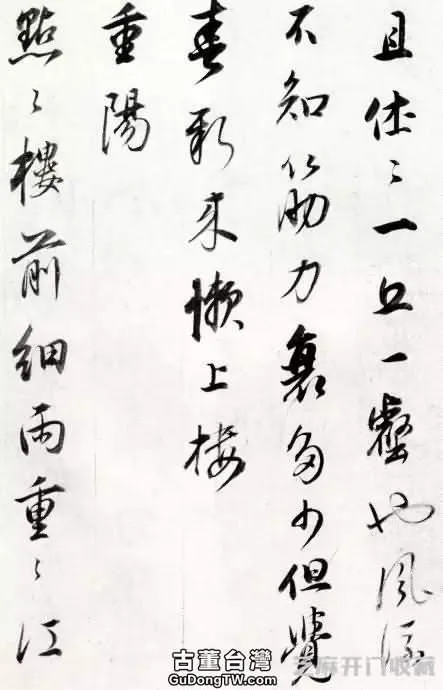 且休〻一丘一壑也風流
不知筋力衰多少但覺
新来懶上樓
重陽
點〻樓前細雨重〻江
古董台灣
GuDongTW.com
芝麻开门收藏